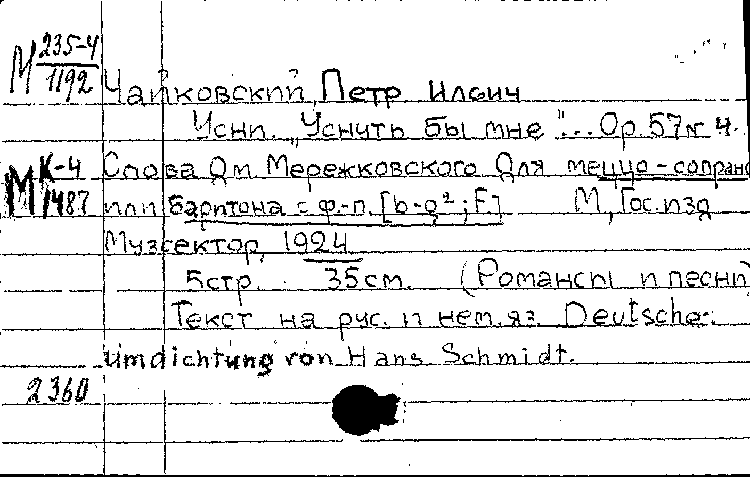 М 235-4
1192
Чайковский, Петр Ильич
Усни. „Уснуть бы мне"... Op. 57 № 4.
М К-4
1487
Слова Д. Мережковского Для меццо-сопрано
или баритона с ф.-п. [b-g²; F.] М., Гос. изд
Музсектор, 1924
5 стр. 35 см. (Романсы и песни)
Текст на рус. и нем. яз. Deutsche
Umdichtung von Hans Schmidt.
2360